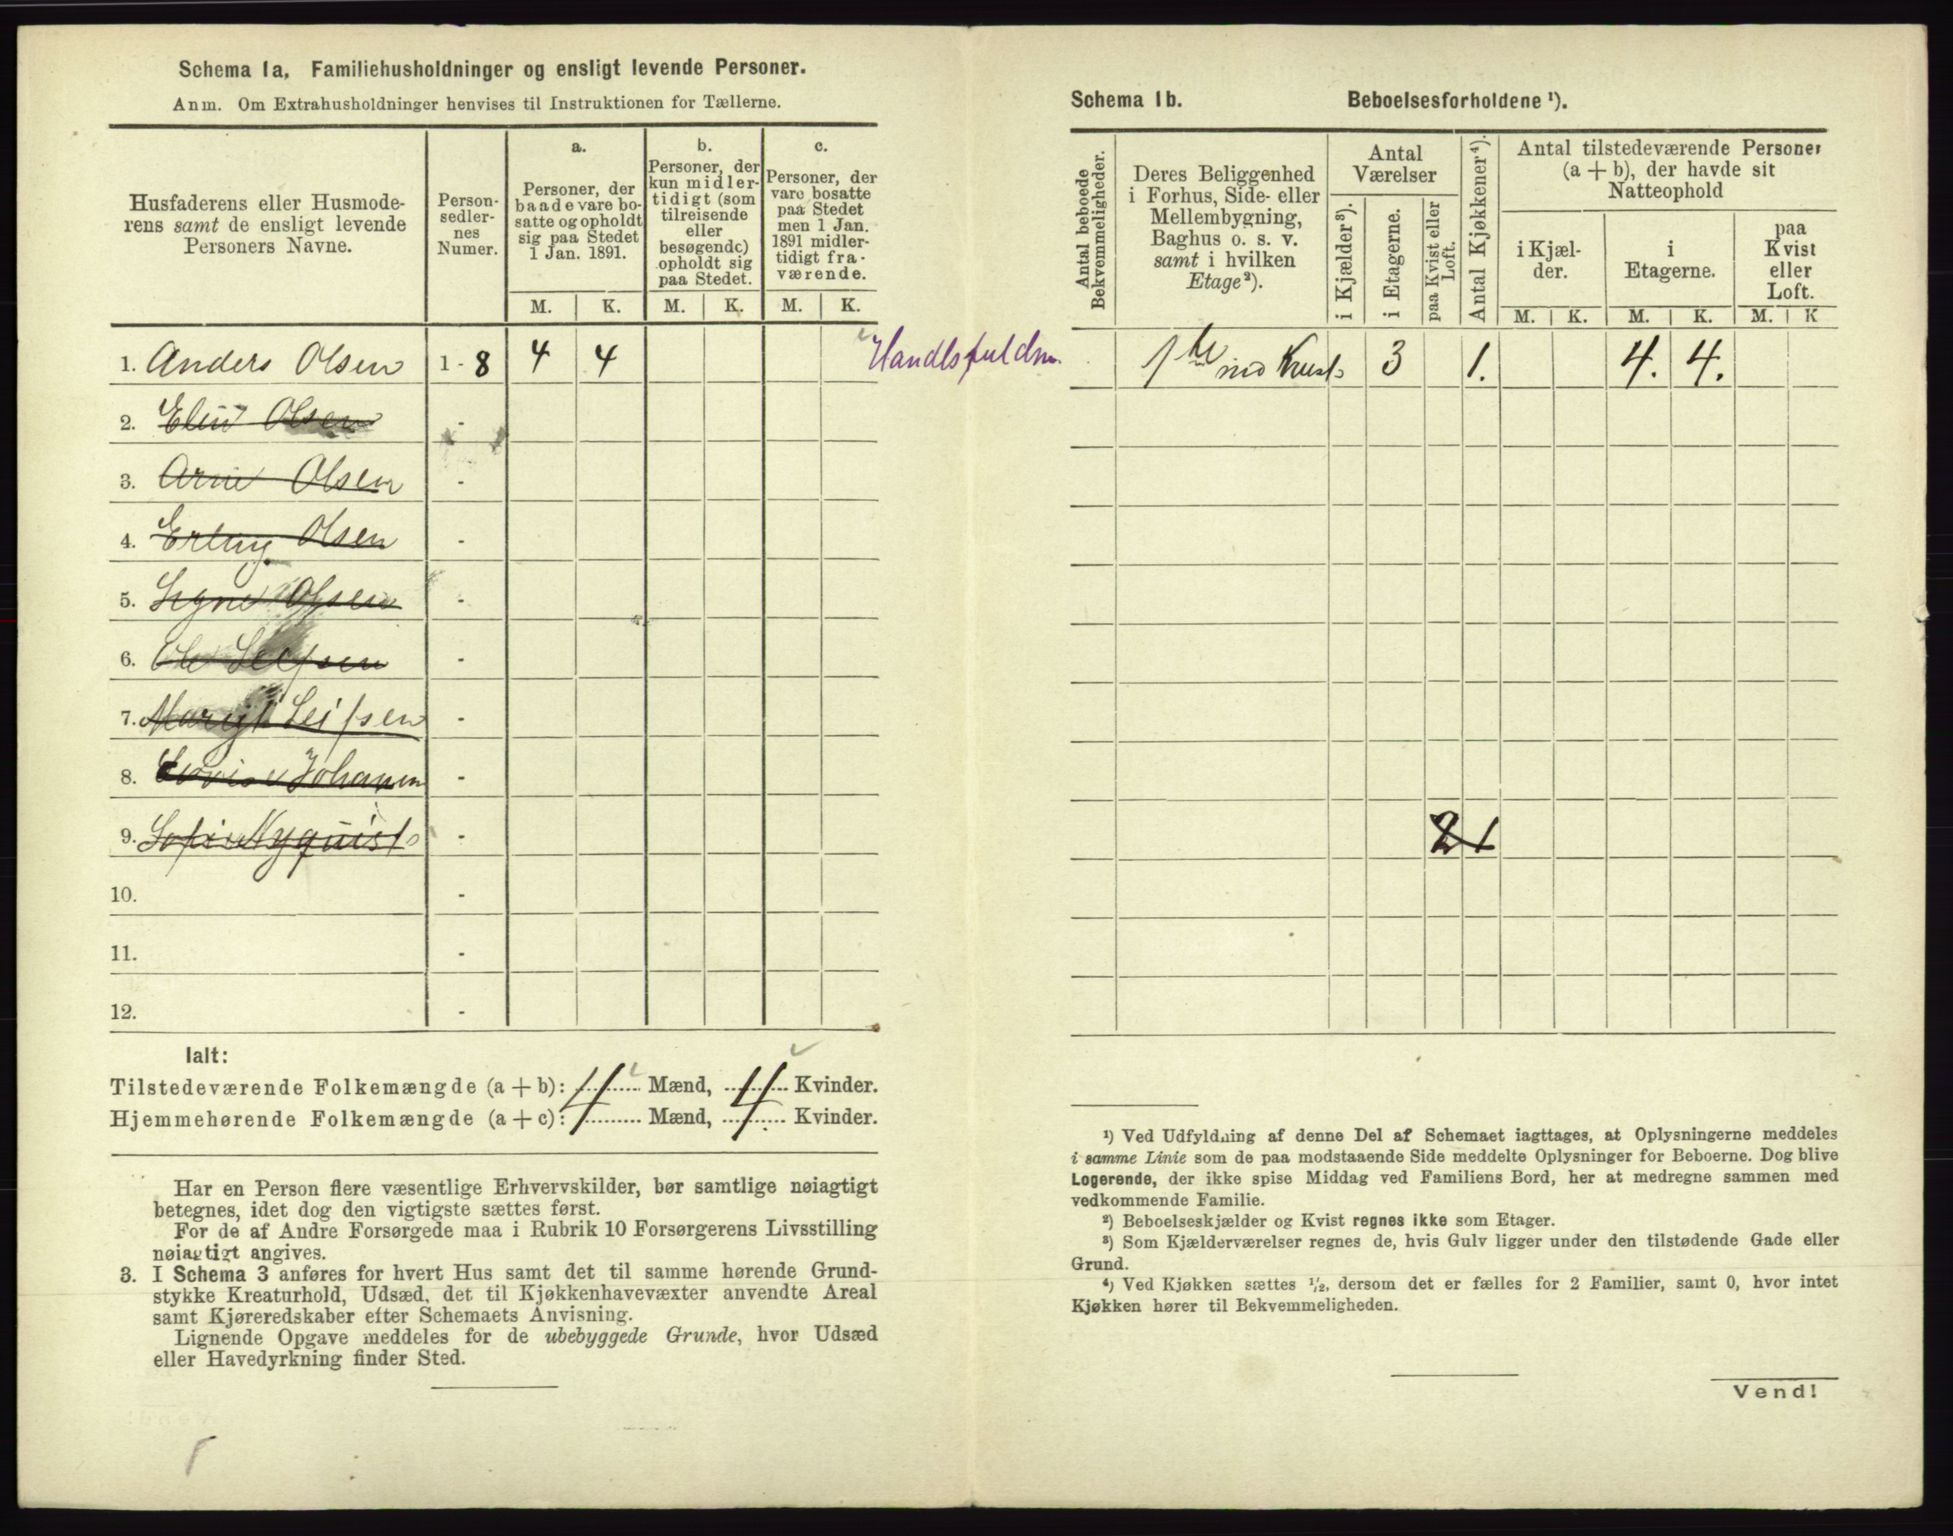 Schema 1a. Familiehusholdninger og ensligt levende Personer.
Anm. Om Extrahusholdninger henvises til Instruktionen for Tællerne.
Husfaderens eller Husmoderens samt de ensligt levende Personers Navne.
Personsedlernes Numer.
a.
Personer, der baade vare bosatte og opholdt sig paa Stedet 1 Jan. 1891.
b.
Personer, der kun midlertidigt (som tilreisende eller besøgende) opholdt sig paa Stedet.
c.
Personer, der vare bosatte paa Stedet men 1 Jan. 1891 midlertidigt fraværende.
M. K. M. K. M. K.
1. Anders Olsen 1 - 8 4 4
2. Olsen -
3. Olsen -
4. Erling Olsen -
5. Signe Olsen -
6. Ole Leifsen -
7. Leifsen -
8. Johansen -
9. Sofie Nyquist -
10. -
11. -
12. -
Ialt:
Tilstedeværende Folkemængde (a + b): 4 Mænd, 4 Kvinder.
Hjemmehørende Folkemængde (a + c): 4 Mænd, 4 Kvinder.
Har en Person flere væsentlige Erhvervskilder, bør samtlige nøiagtigt
betegnes, idet dog den vigtigste sættes først.
For de af Andre Forsørgede maa i Rubrik 10 Forsørgerens Livsstilling
nøiagtigt angives.
3. I Schema 3 anføres for hvert Hus samt det til samme hørende Grund-
stykke Kreaturhold, Udsæd, det til Kjøkkenhavevæxter anvendte Areal
samt Kjøreredskaber efter Schemaets Anvisning.
Lignende Opgave meddeles for de ubebyggede Grunde, hvor Udsæd
eller Havedyrkning finder Sted.
Schema 1b. Beboelsesforholdene ¹).
Antal beboede Bekvemmeligheder.
Deres Beliggenhed i Forhus, Side- eller Mellembygning, Baghus o. s. v. samt i hvilken Etage²).
Antal Værelser
i Kjælder³).
i Etagerne.
paa Kvist eller Loft.
Antal Kjøkkener⁴).
Antal tilstedeværende Personer (a + b), der havde sit Natteophold
i Kjælder.
i Etagerne.
paa Kvist eller Loft.
M. K. M. K. M. K
1ste 3 1. 4. 4.
2 1
¹) Ved Udfyldning af denne Del af Schemaet iagttages, at Oplysningerne meddeles
i samme Linie som de paa modstaaende Side meddelte Oplysninger for Beboerne. Dog blive
Logerende, der ikke spise Middag ved Familiens Bord, her at medregne sammen med
vedkommende Familie.
²) Beboelseskjælder og Kvist regnes ikke som Etager.
³) Som Kjælderværelser regnes de, hvis Gulv ligger under den tilstødende Gade eller
Grund.
⁴) Ved Kjøkken sættes ½, dersom det er fælles for 2 Familier, samt 0, hvor intet
Kjøkken hører til Bekvemmeligheden.
Vend!